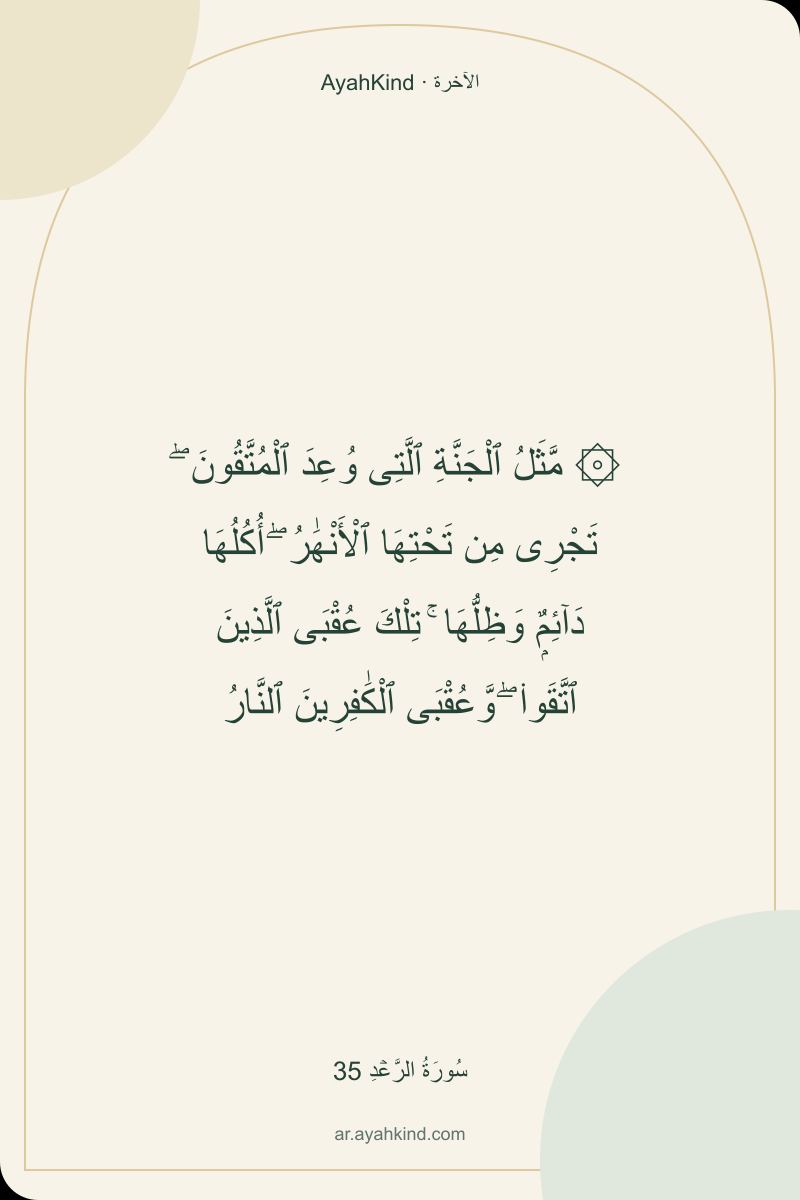 AyahKind · الآخرة
۞ مَّثَلُ ٱلْجَنَّةِ ٱلَّتِى وُعِدَ ٱلْمُتَّقُونَ ۖ
تَجْرِى مِن تَحْتِهَا ٱلْأَنْهَٰرُ ۖ أُكُلُهَا
دَآئِمٌۭ وَظِلُّهَا ۚ تِلْكَ عُقْبَى ٱلَّذِينَ
ٱتَّقَوا۟ ۖ وَّعُقْبَى ٱلْكَٰفِرِينَ ٱلنَّارُ
سُورَةُ الرَّعۡدِ 35
ar.ayahkind.com